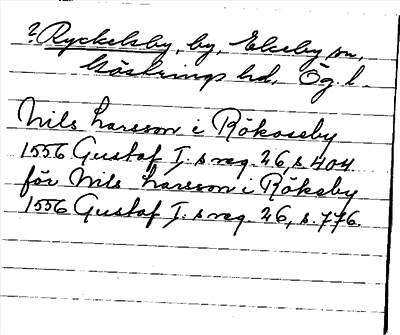 ? Ryckelsby, by, Ekeby sn,
Göstrings hd, Ög. l.
Nils Larsson i Rökoseby
1556 Gustaf I.s reg. 26, s. 404
för Nils Larsson i Rökeby
1556 Gustaf I.s reg. 26, s. 776.